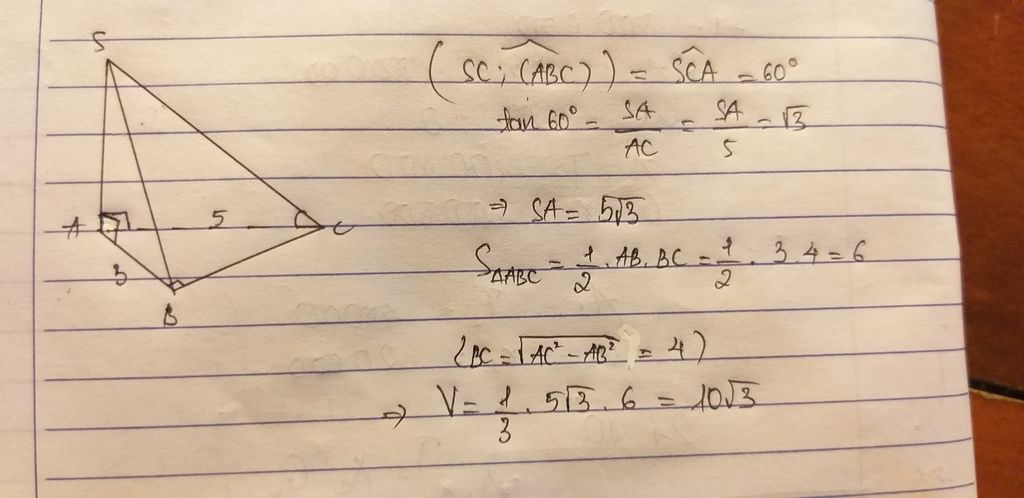 S
A
5
C
3
B
(SC; (ABC)) = SCA = 60°
tan 60° = SA/AC = SA/5 = √3
⇒ SA = 5√3
S△ABC = 1/2 . AB. BC = 1/2 . 3 4 = 6
(BC = √AC² - AB² = 4)
⇒ V = 1/3 . 5√3 . 6 = 10√3